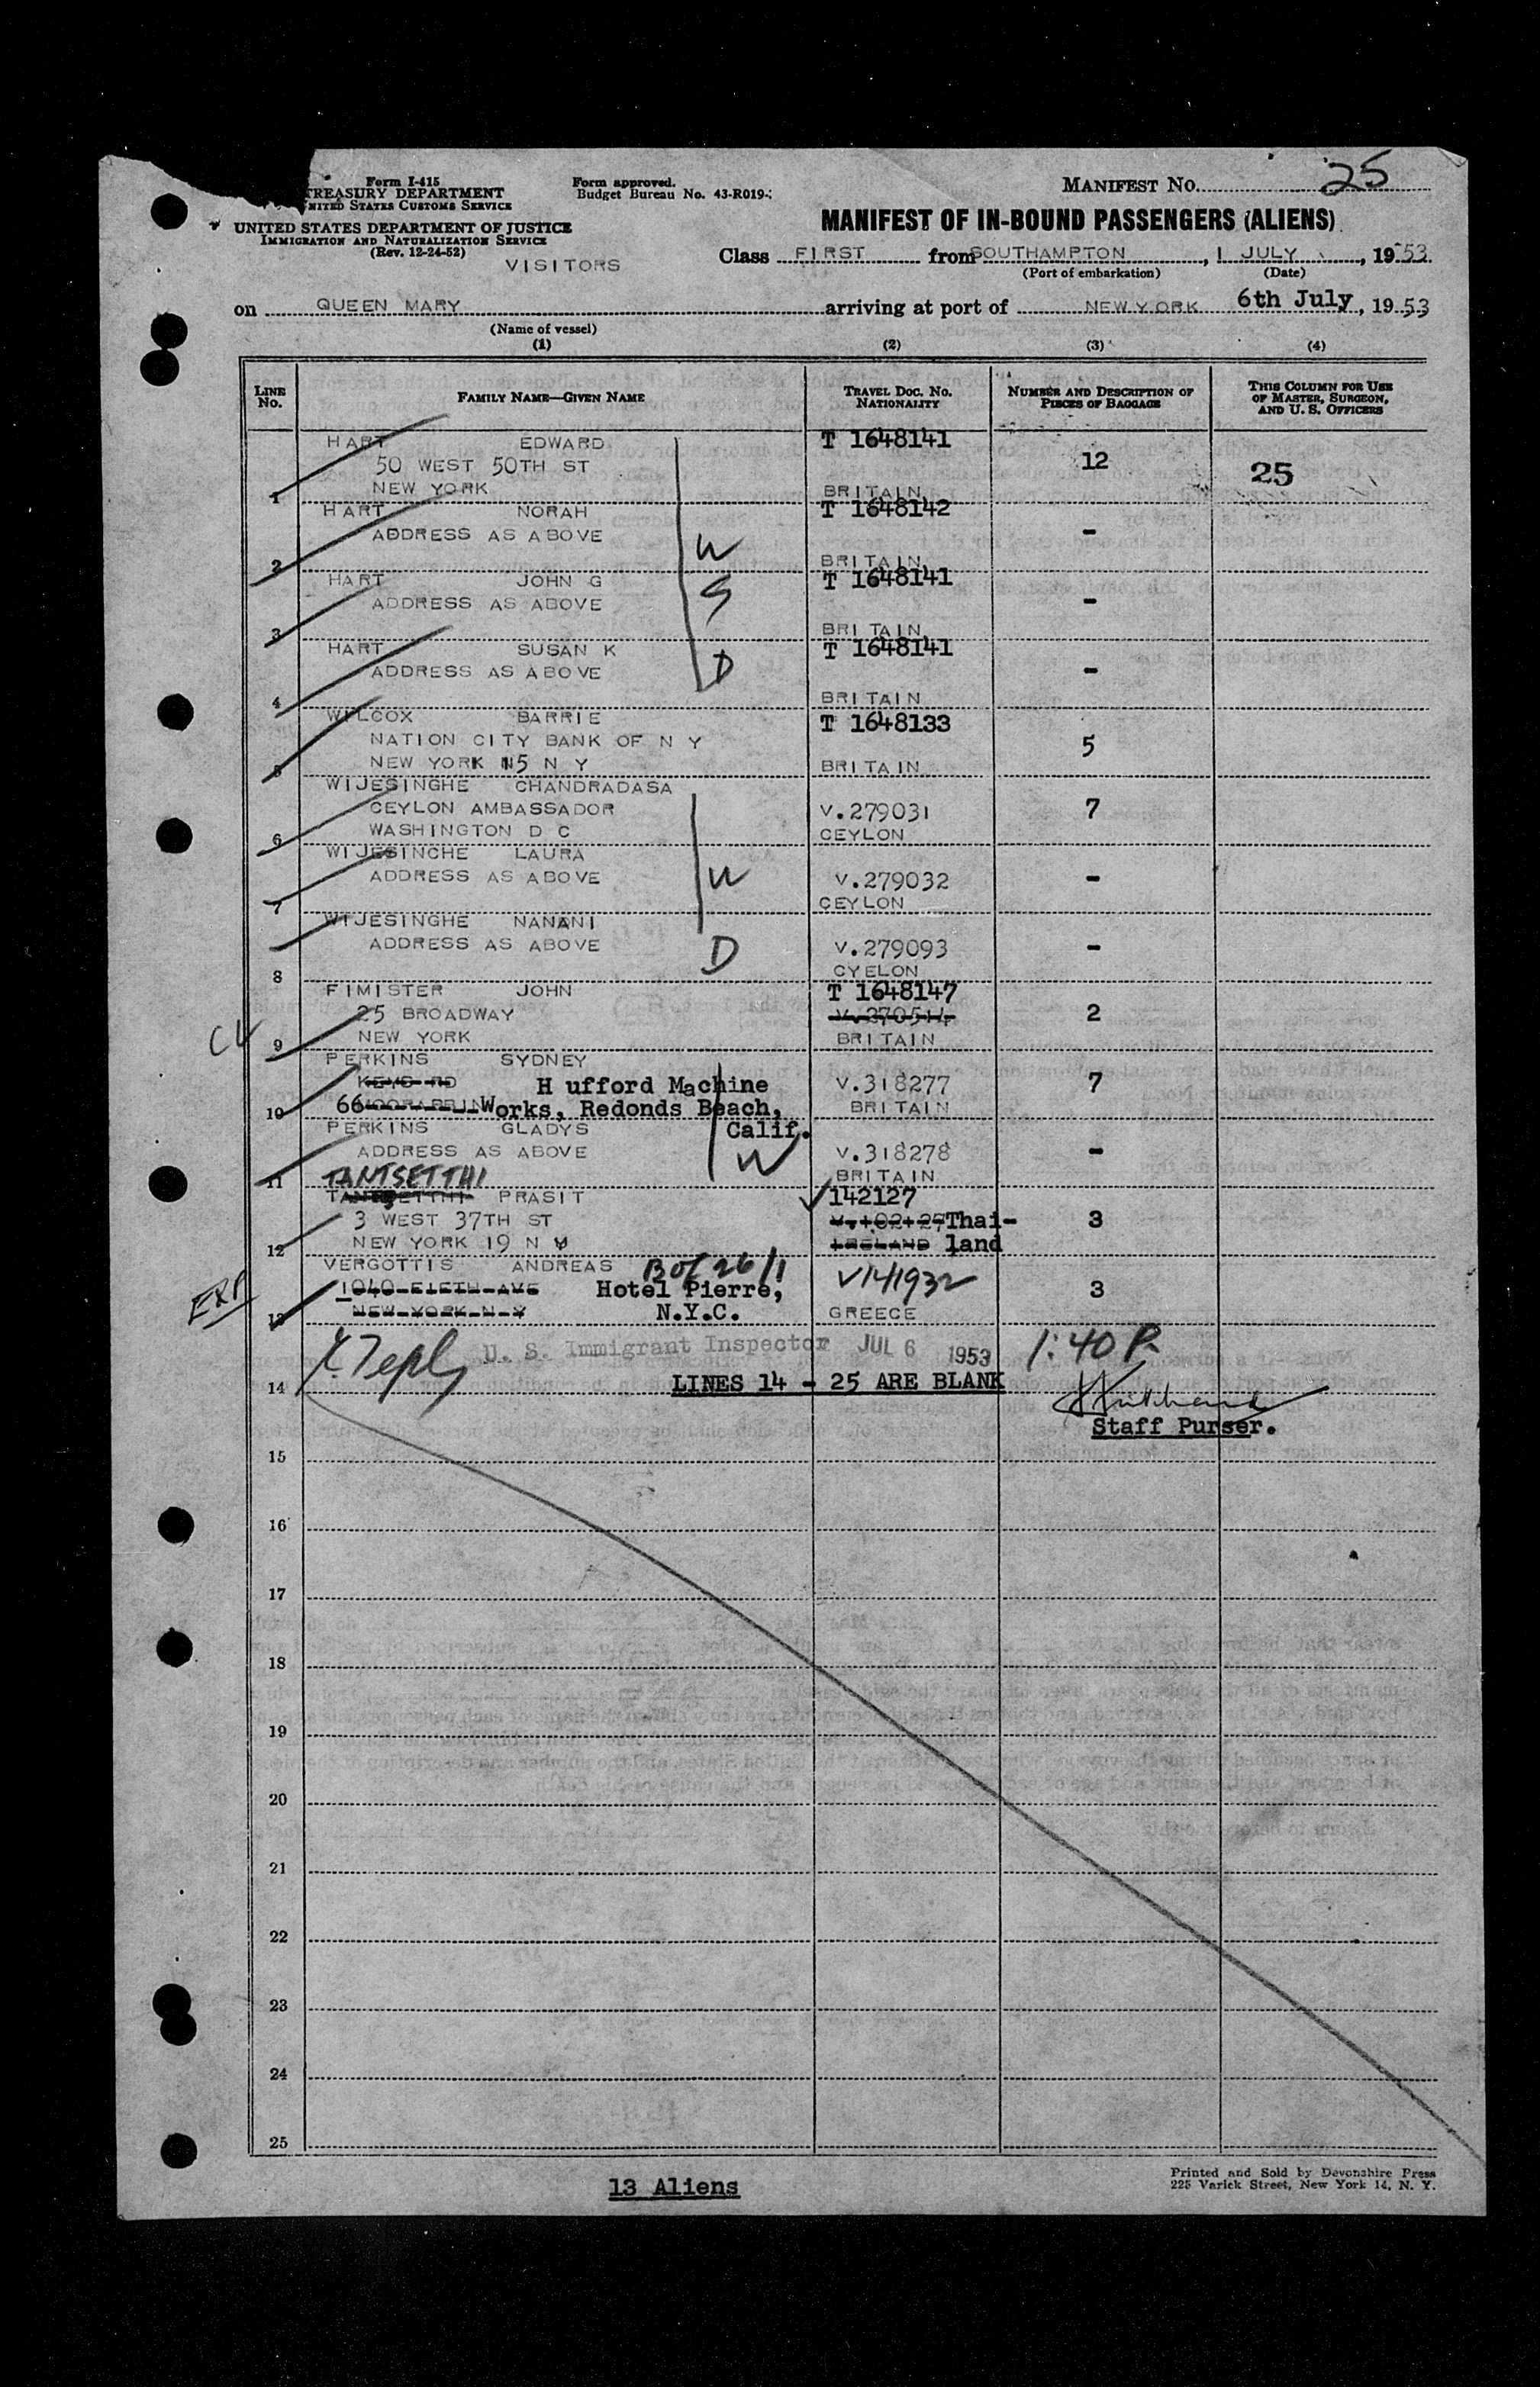 Form I-415
TREASURY DEPARTMENT
UNITED STATES CUSTOMS SERVICE
UNITED STATES DEPARTMENT OF JUSTICE
IMMIGRATION AND NATURALIZATION SERVICE
(Rev. 12-24-52)
VISITORS
Form approved.
Budget Bureau No. 43-R019-
MANIFEST NO. 25
MANIFEST OF IN-BOUND PASSENGERS (ALIENS)
Class FIRST from SOUTHAMPTON, 1 JULY, 1953
(Port of embarkation) (Date)
on QUEEN MARY arriving at port of NEW YORK 6th July, 1953
(Name of vessel)
(1) (2) (3) (4)
LINE No. FAMILY NAME—GIVEN NAME TRAVEL DOC. NO. NATIONALITY NUMBER AND DESCRIPTION OF PIECES OF BAGGAGE THIS COLUMN FOR USE OF MASTER, SURGEON, AND U. S. OFFICERS
HART EDWARD T 1648141
50 WEST 50TH ST 12 25
1 NEW YORK BRITAIN
HART NORAH T 1648142
ADDRESS AS ABOVE W -
2 BRITAIN
HART JOHN G T 1648141
ADDRESS AS ABOVE S -
3 BRITAIN
HART SUSAN K T 1648141
ADDRESS AS ABOVE D -
4 BRITAIN
WILCOX BARRIE T 1648133
NATION CITY BANK OF N Y 5
5 NEW YORK N5 N Y BRITAIN
WIJESINGHE CHANDRADASA
CEYLON AMBASSADOR V.279031 7
6 WASHINGTON D C CEYLON
WIJESINCHE LAURA
ADDRESS AS ABOVE W V.279032 -
7 CEYLON
WIJESINGHE NANANI
ADDRESS AS ABOVE D V.279093 -
8 CYELON
FIMISTER JOHN T 1648147
25 BROADWAY V.270514 2
9 NEW YORK BRITAIN
PERKINS SYDNEY
KEYS RD H ufford Machine V.318277 7
10 66 Works, Redonds Beach, BRITAIN
PERKINS GLADYS Calif.
ADDRESS AS ABOVE W V.318278 -
11 TANTSETTHI BRITAIN
PRASIT 142127
3 WEST 37TH ST Thai- 3
12 NEW YORK 19 N Y IRELAND land
VERGOTTIS ANDREAS
EXP 1040 FIFTH AVE Hotel Pierre, V141932 3
13 NEW YORK N Y N.Y.C. GREECE
U. S. Immigrant Inspector JUL 6 1953 1:40 P.
14 LINES 14 - 25 ARE BLANK
Staff Purser.
15
16
17
18
19
20
21
22
23
24
25
13 Aliens
Printed and Sold by Devonshire Press
225 Varick Street, New York 14, N. Y.